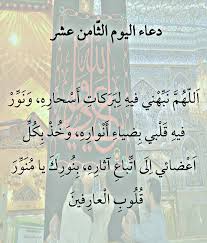 دعاء اليوم الثّامن عشر
اَللّهُمَّ نَبِّهْني فيهِ لِبَرَكاتِ أَسْحارِهِ، وَنَوِّرْ
فيهِ قَلْبي بِضِياءِ أَنْوارِهِ، وَخُذْ بِكُلِّ
أَعْضائي اِلَى اتِّباعِ آثارِهِ، بِنُورِكَ يا مُنَوِّرَ
قُلُوبِ الْعارِفينَ